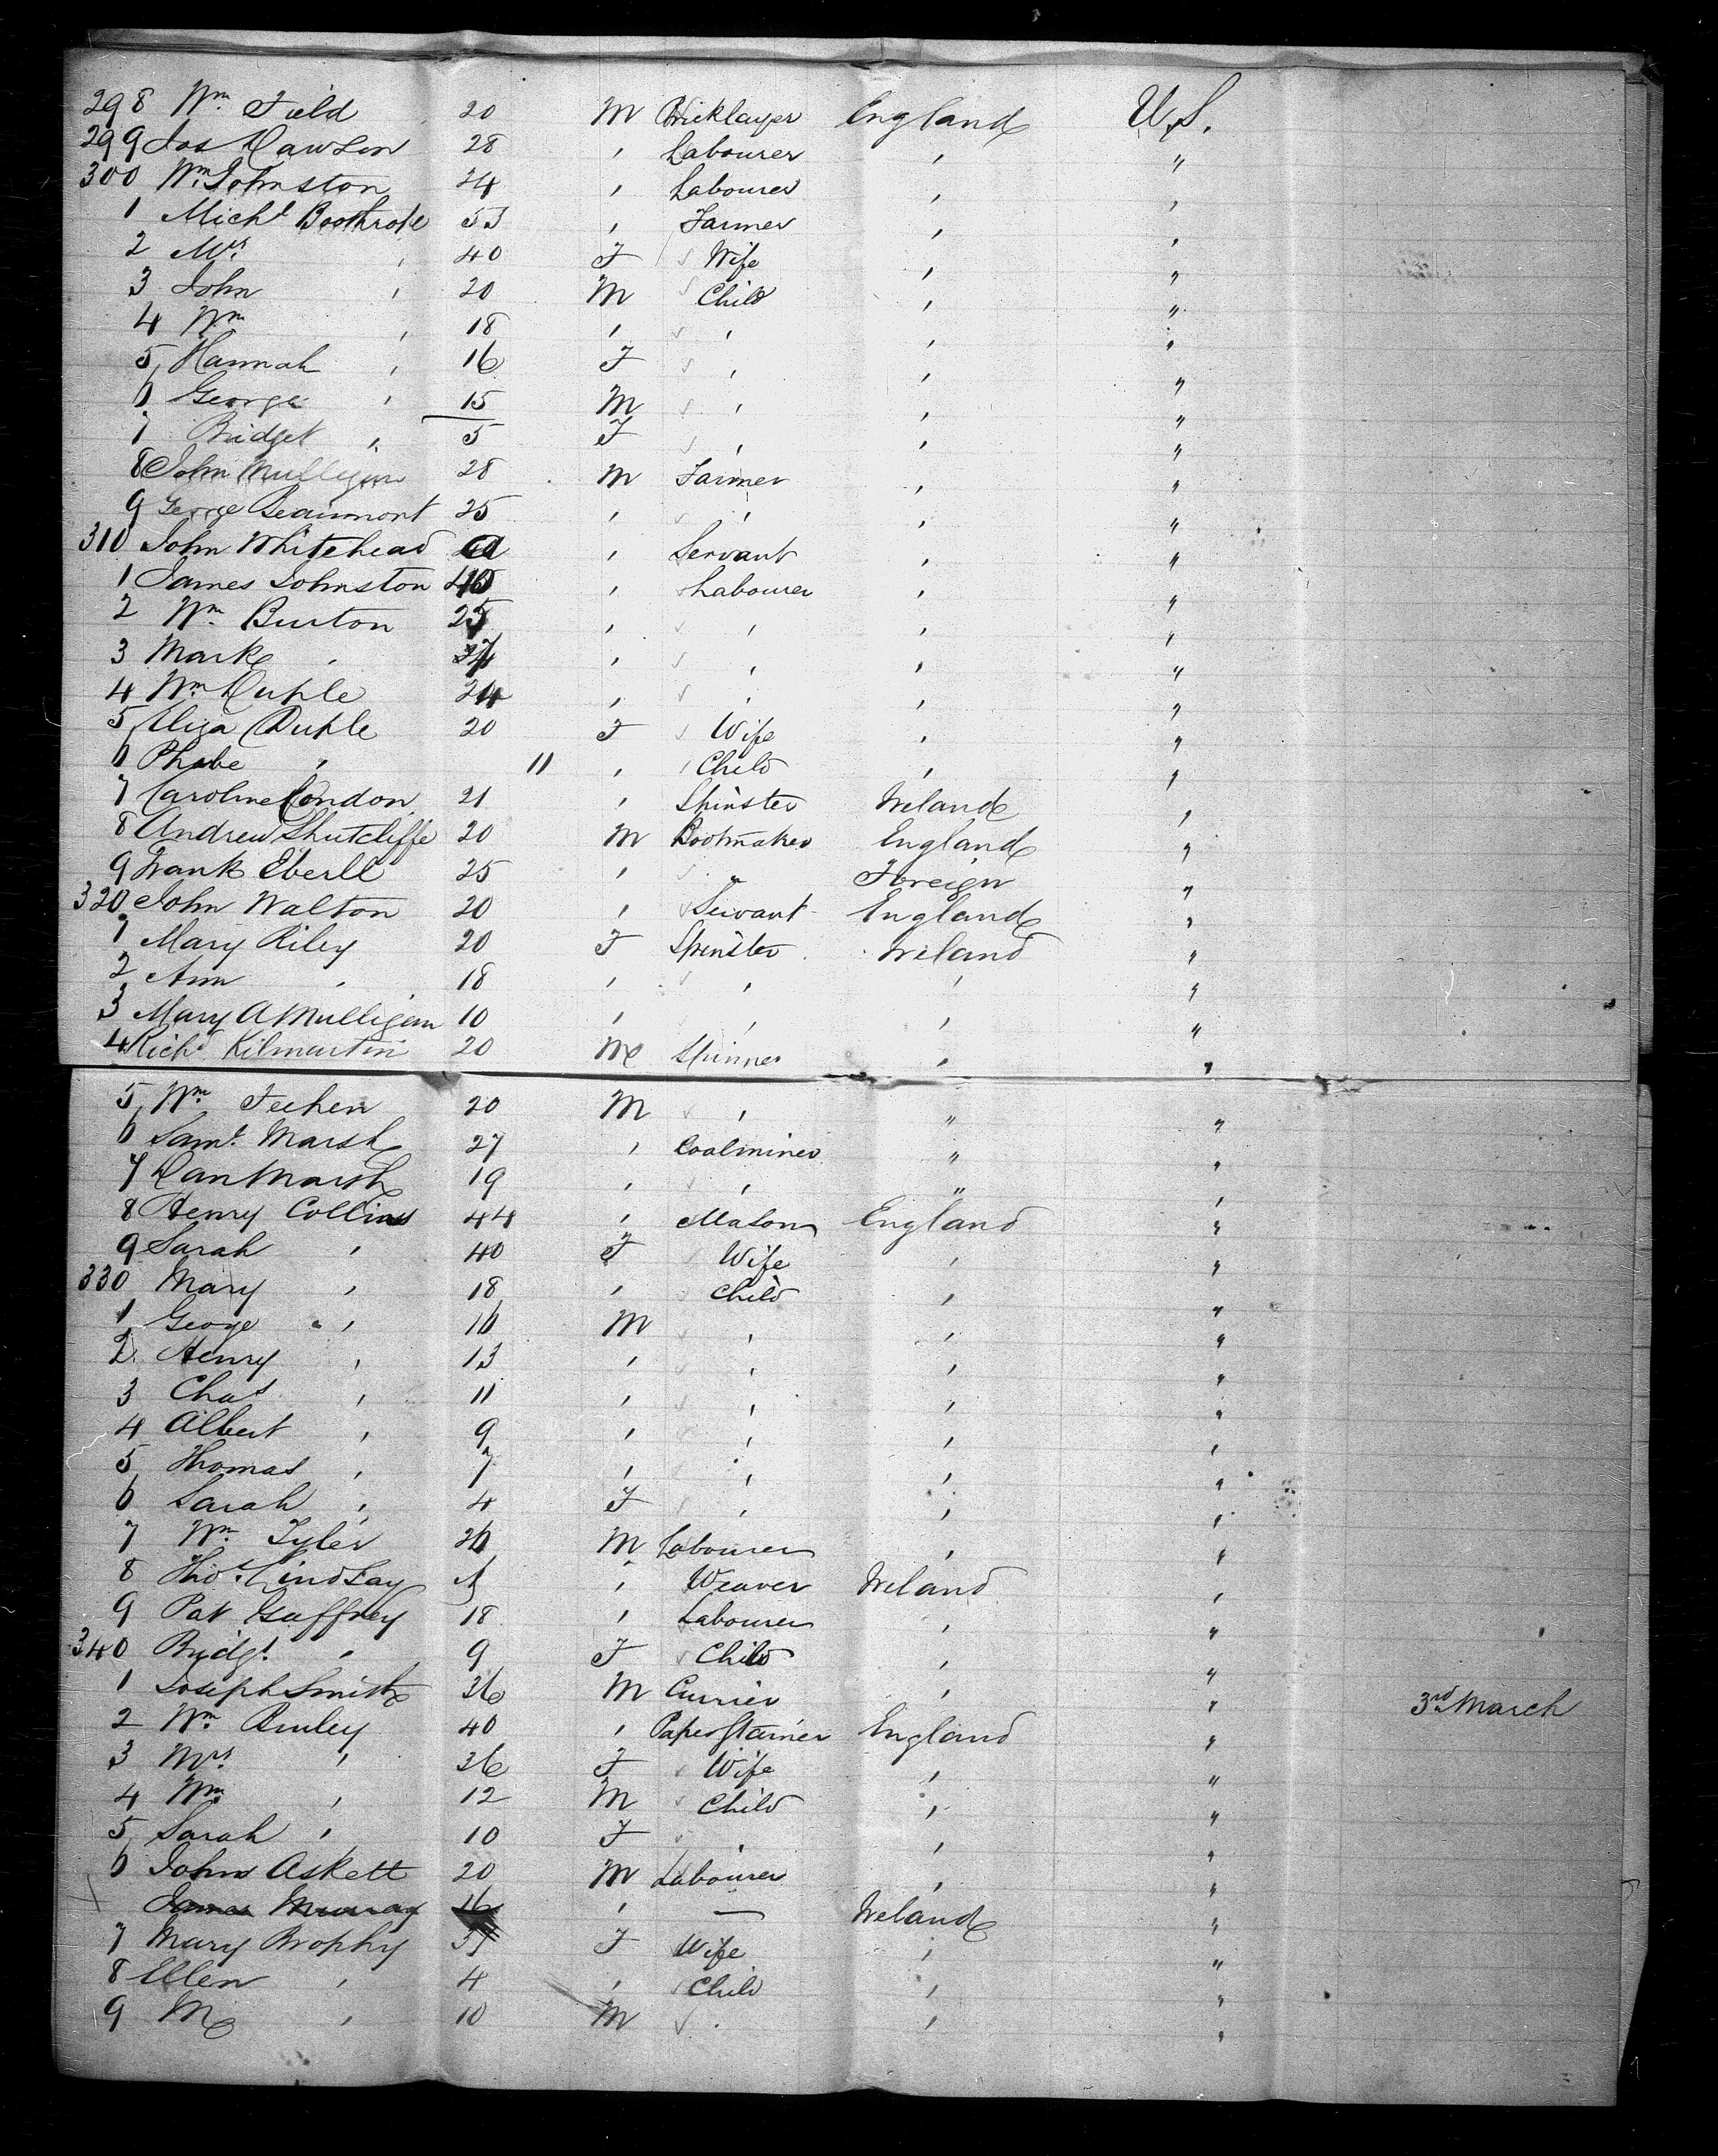 298 Wm. Field 20 M Bricklayer England U.S.
299 Jos Dawson 28 , Labourer , "
300 Wm. Johnston 24 , Labourer , ,
1 Michl 53 , Farmer , ,
2 Mrs , 40 F Wife , "
3 John , 20 M Child , "
4 Wm , 18 , , , ,
5 Hannah , 16 F , , "
6 George , 15 M , , "
7 Bridget , 5 F , , "
8 John Mulligan 28 M Farmer , "
9 George Beaumont 25 , , , "
310 John Whitehead , Servant , "
1 James Johnston , Labourer , "
2 Wm. Burton 25 , , , ,
3 Mark , , , , "
4 Wm. Duple 24 , , , "
5 Eliza Duple 20 F Wife , "
6 Phabe , 11 , Child , ,
7 Caroline Condon 21 , Spinster Ireland ,
8 Andrew Shutcliffe 20 M Bootmaker England "
9 Frank Eberll 25 , " Foreign "
320 John Walton 20 , Servant England "
1 Mary Riley 20 F Spinster Ireland "
2 Ann , 18 , , , "
3 Mary A Mulligan 10 , , , "
4 Richd Kilmartin 20 M Spinner , ,
5 Wm. Feehen 20 M , " "
6 Saml. Marsh 27 , Coalminer " ,
7 Dan Marsh 19 , , " ,
8 Henry Collins 44 , Mason England "
9 Sarah , 40 F Wife , "
330 Mary , 18 , Child , "
1 Geoge , 16 M , , "
2 Henry , 13 , , , "
3 Chas , 11 , , , "
4 Albert , 9 , , , ,
5 Thomas , 7 , , , "
6 Sarah , 4 F , , ,
7 Wm. Tyler 26 M Labourer , "
8 Thos. Lindsay , Weaver Ireland ,
9 Pat Gaffney 18 , Labourer , "
340 Bridgt , 9 F Child , "
1 Joseph Smith 36 M Currier , " 3rd March
2 Wm. 40 , Paper Stainer England "
3 Mrs. , 36 F Wife , "
4 Wm. , 12 M Child , "
5 Sarah , 10 F , , "
6 John Askett 20 M Labourer , "
James Murray 16 , — Ireland "
7 Mary Brophy F Wife , "
8 Ellen , 4 , Child , "
9 M , 10 M , , ,